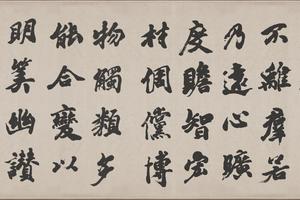 不離羣若
乃遠心曠
度贍智宏
材倜儻博
物觸類多
能合變以
明筭幽讚